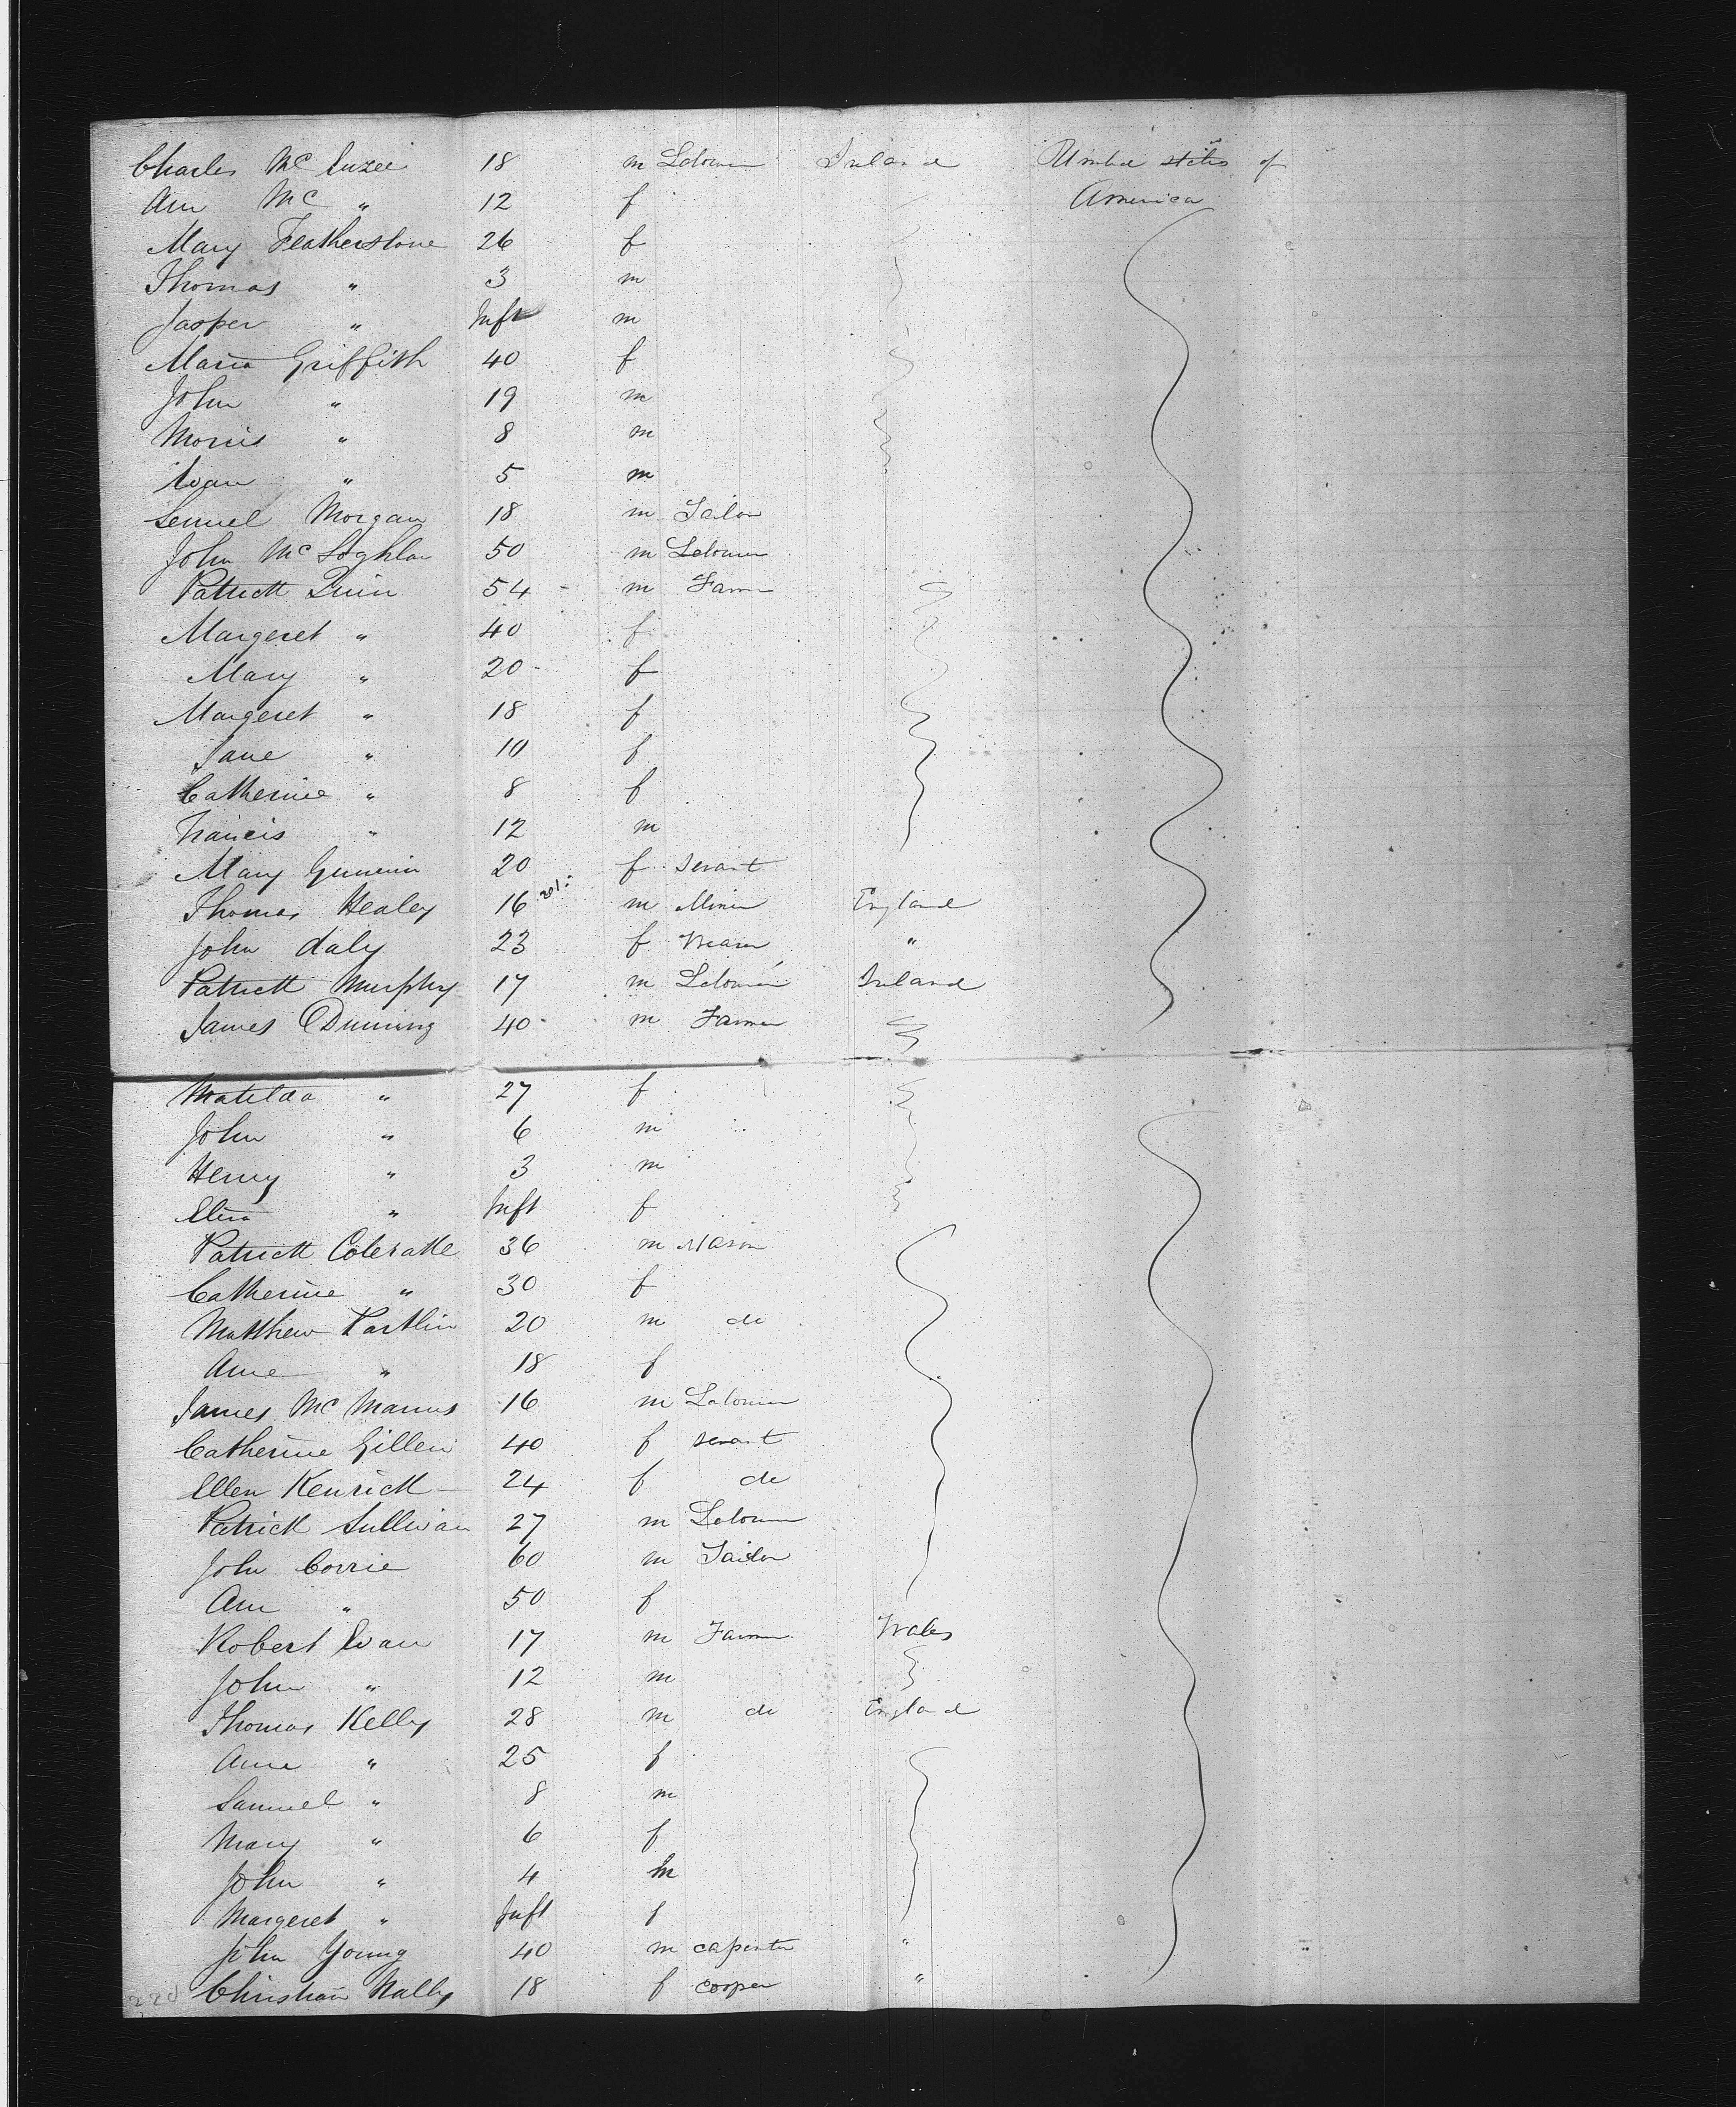 Charles Mc 18 m Labourer Ireland United states of
Ann Mc " 12 f America
Mary Featherstone 26 f
Thomas " 3 m
Jasper " Inft m
Maria Griffith 40 f
John " 19 m
Morris " 8 m
Evan " 5 m
Lemuel Morgan 18 m Tailor
John Mc Loghlan 50 m Labourer
Patrick Quin 54 - m Farmer
Margeret " 40 f
Mary " 20 - f
Margeret " 18 f
Jane " 10 f
Catherine " 8 f
Francis " 12 m
Mary 20 f servant
Thomas Healey 16 m Miner England
John daly 23 f "
Patrick Murphy 17 m Labourer Ireland
James Dunning 40 - m Farmer
Matilda " 27 f
John " 6 m
Henry " 3 m
Eliza " Inft f
Patrick 36 m Mason
Catherine " 30 f
Matthew Partlin 20 m do
Anne " 18 f
James Mc Manus 16 m Labourer
Catherine Gillen 40 f servant
Ellen Kenrick 24 f do
Patrick Sullivan 27 m Labourer
John Corrie 60 m Tailor
Ann " 50 f
Robert Evan 17 m Farmer Wales
John " 12 m
Thomas Kelly 28 m do England
Anne " 25 f
Samuel " 8 m
Mary " 6 f
John " 4 m
Margeret " Inft f
John Young 40 m capenter "
Christian Nally 18 f cooper "
220